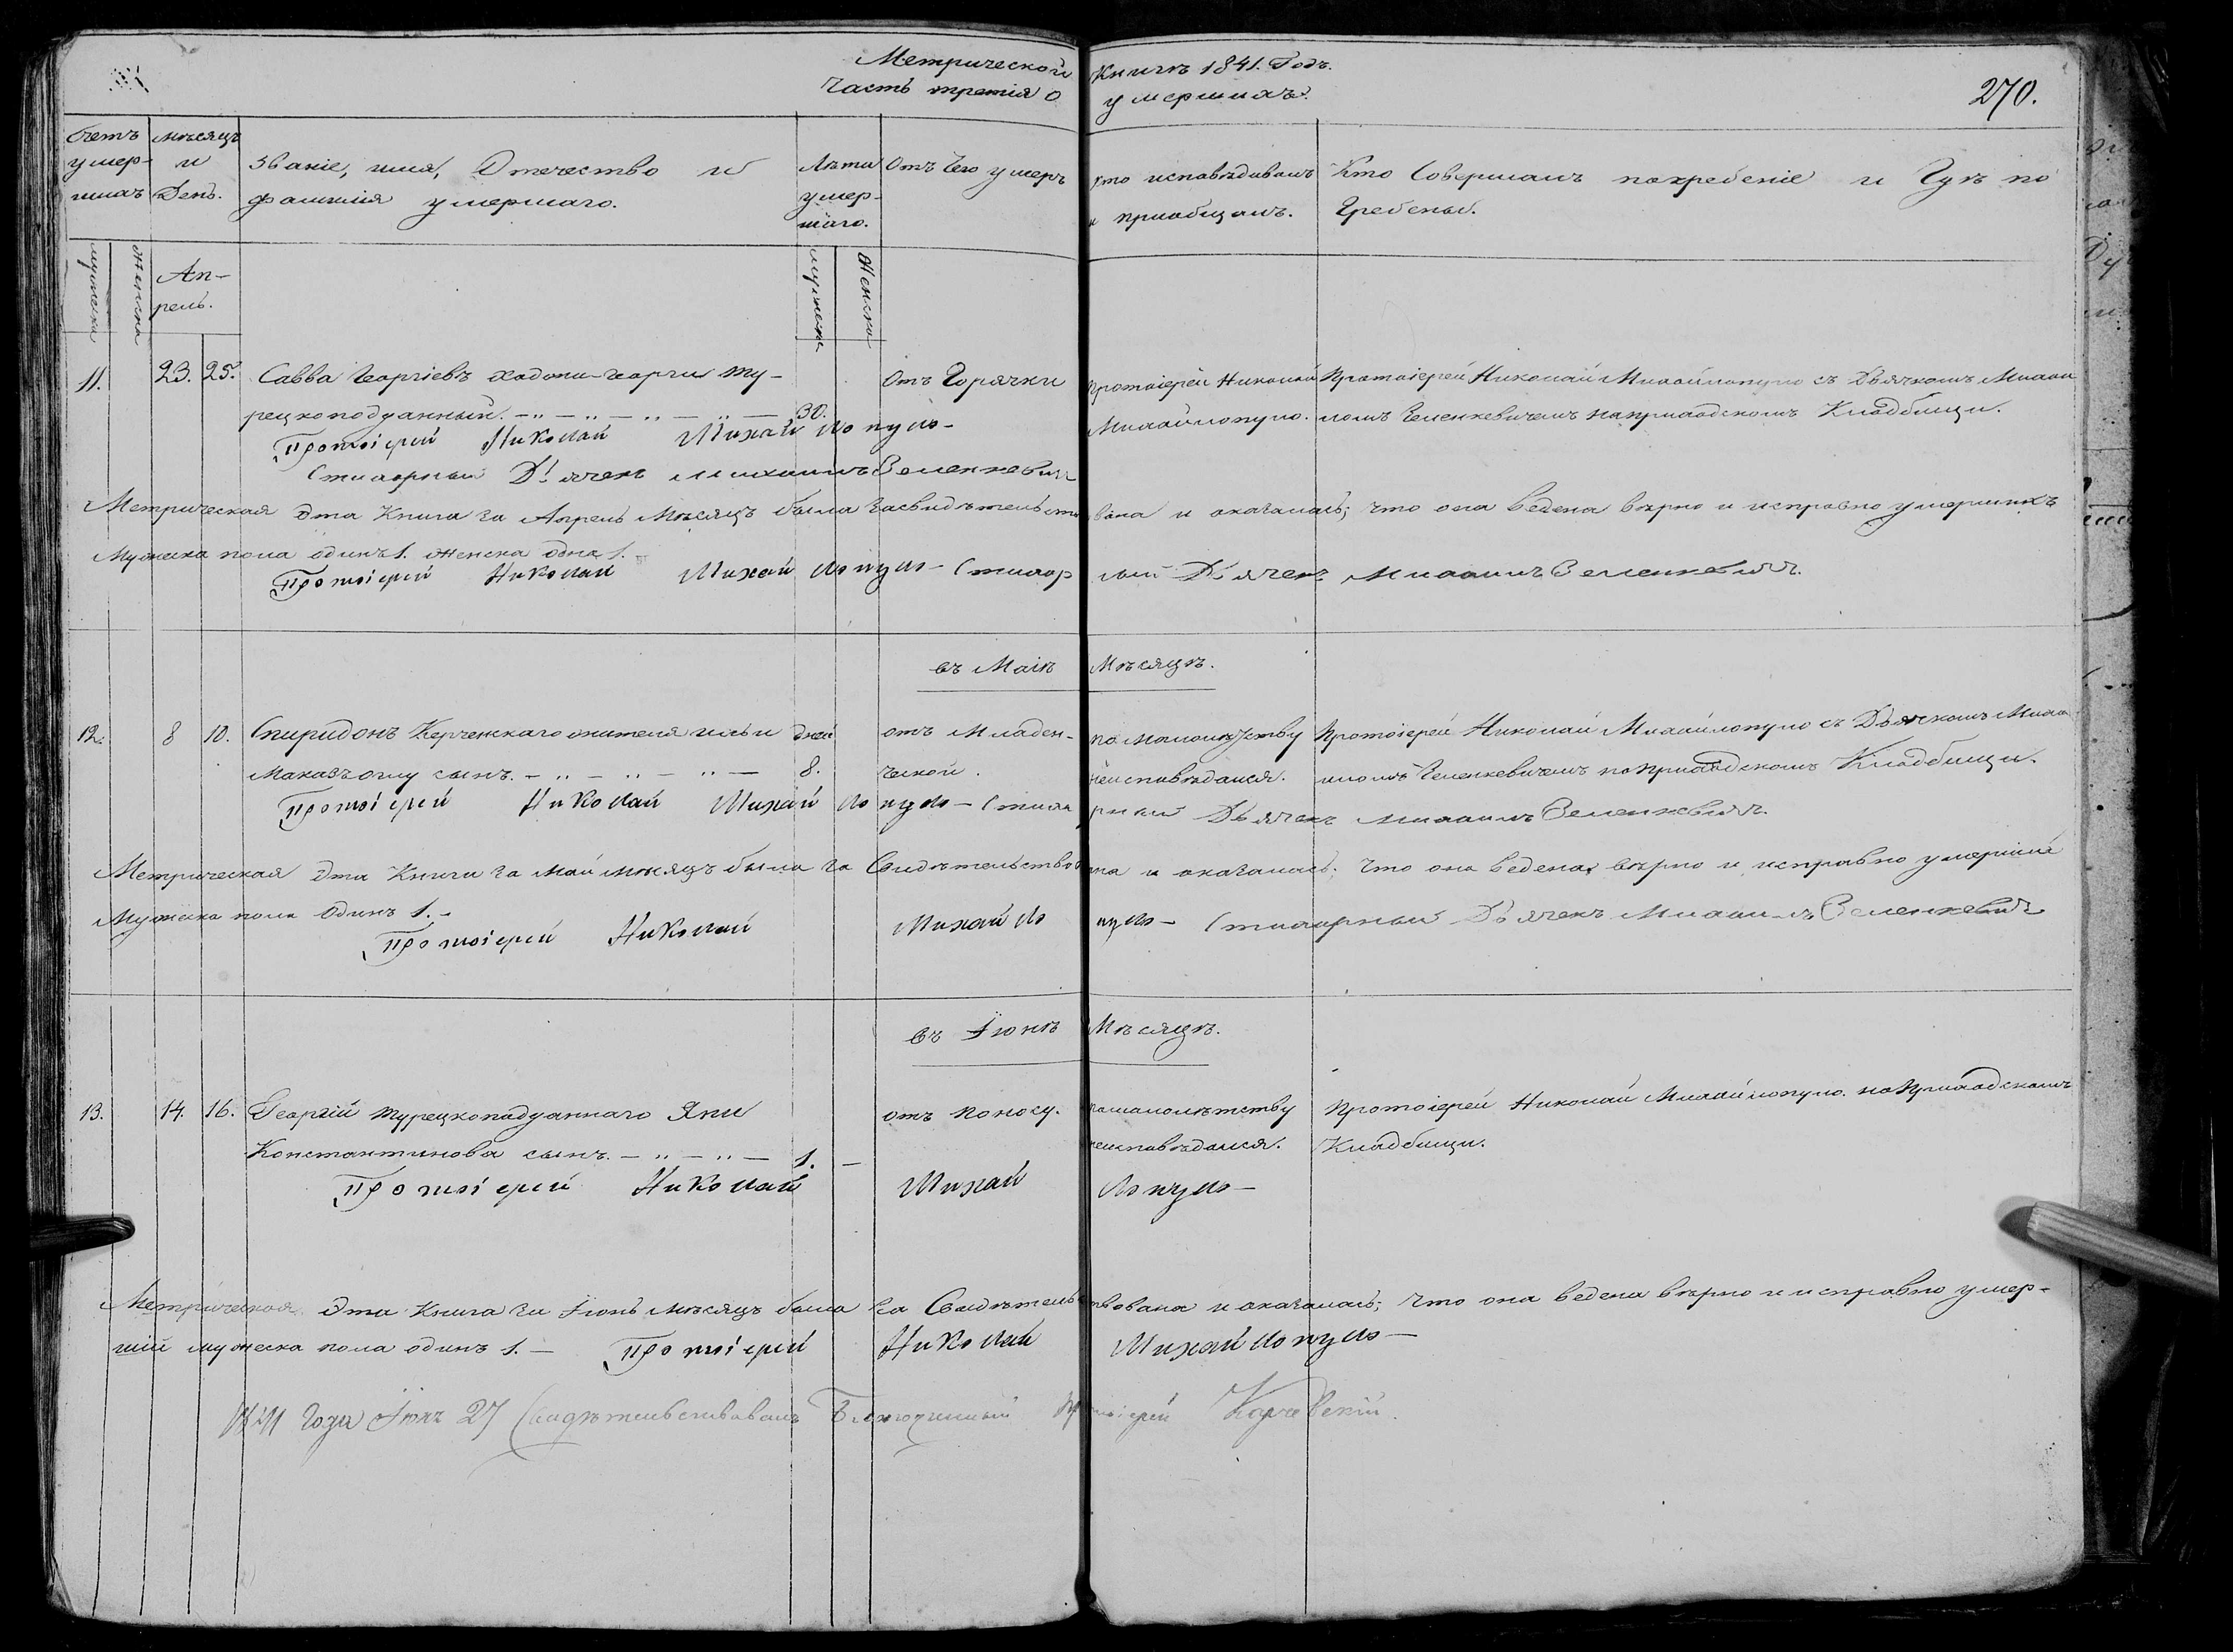 Метрической Книгѣ 1841. Годъ.
Часть третія о умершихъ.
270.
Счетъ умер-шихъ
мѣсяцъ и День.
Званіе, имя, Отечество и фамилія умершаго.
Лѣта умер-шаго.
Отъ Чего умеръ
Кто исповѣдивалъ и приобщалъ.
Кто Совершалъ погребеніе и Гдѣ по Гребены.
мужеска
женска
Ап-рель.
мужеска
Женска
11. 23. 25. Савва Георгіевъ хаджи-георги ту- Отъ Горячки Протоіерей Николай Протоіерей Николай Михайлопуло съ Дьячкомъ Михаи
рецкоподданный. 30. Михайлопуло. ломъ Зеленкевичемъ на приходскомъ Кладбищи.
Протоіерей Николай Михайлопуло-
Стихарный Дьячекъ Михаилъ Зеленкевичъ
Метрическая Эта Книга за Апрель Мѣсяцъ была Засвидѣтельство вана и оказалась; что она ведена вѣрно и исправно умершихъ
Мужеска пола одинъ 1. женска одна 1.
Протоіерей Николай Михайлопуло- Стихар ный Дьячекъ Михаилъ Зеленкевичъ.
въ Маіѣ Мѣсяцѣ.
12. 8 10. Спиридонъ Керченскаго жителя ильи дней отъ Младен- по малолѣтству Протоіерей Николай Михайлопуло съ Дьячкомъ Миха
Маказъоглу сынъ. 8. ческой. неисповѣдался. иломъ Зеленкевичемъ на приходскомъ Кладбищи.
Протоіерей Николай Михайлопуло- Стиха рный Дьячекъ Михаилъ Зеленкевичъ.
Метрическая Эта Книги за Май мѣсяцъ была за Свидѣтельствов ана и оказалась; что она ведена вѣрно и исправно умершій
Мужеска пола Одинъ 1.-
Протоіерей Николай Михайлопуло- Стихарный Дьячекъ Михаилъ Зеленкевичъ
въ Іюнѣ Мѣсяцѣ.
13. 14. 16. Георгій турецкоподданнаго Яни отъ поносу. по малолѣтству Протоіерей Николай Михайлопуло. на Приходскомъ
Константинова сынъ. 1. неисповѣдался. Кладбищи.
Протоіерей Николай Михайлопуло-
Метрическая Эта Книга за Іюнь Мѣсяцъ была за Свидѣтельс твована и оказалась; что она ведена вѣрно и исправно умер-
шій мужеска пола одинъ 1.- Протоіерей Николай Михайлопуло-
1841 Года Іюнъ 27 Свидѣтельствовалъ Благочинный Протоіерей